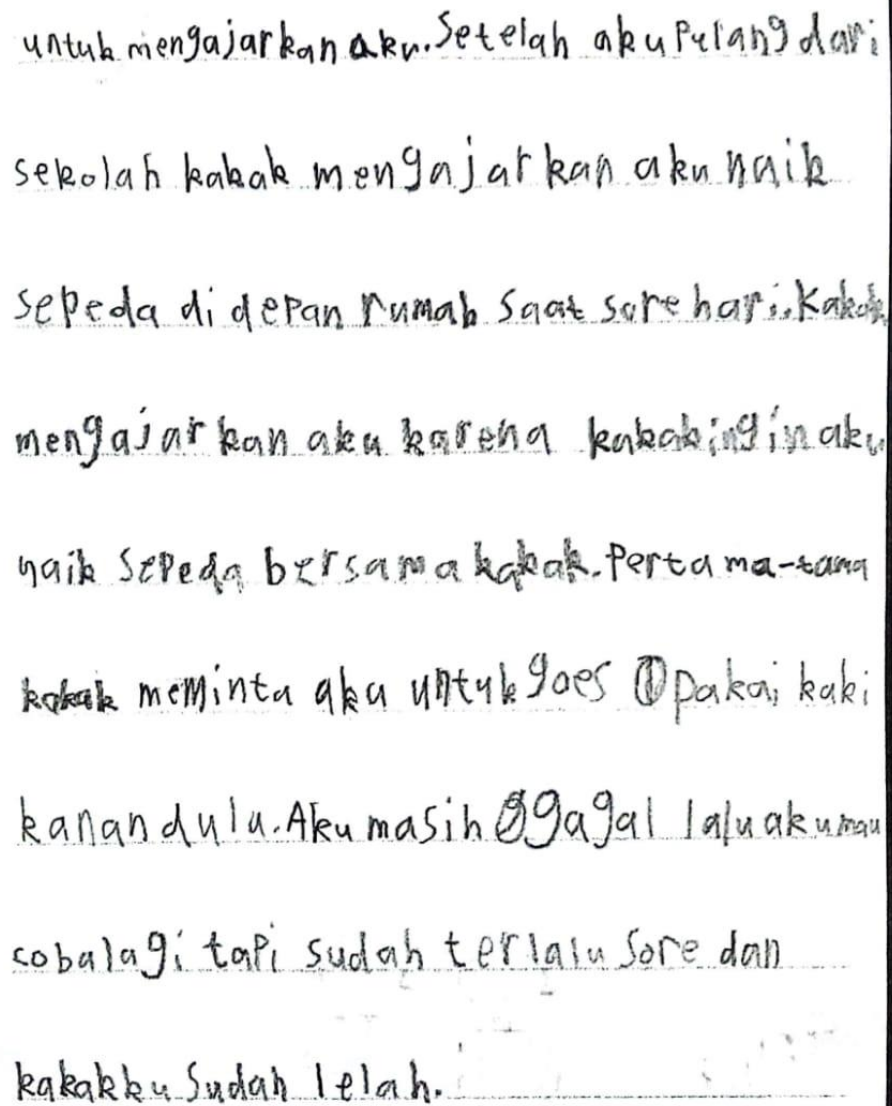 untuk mengajarkan aku. Setelah aku Pulang dari
sekolah kakak mengajarkan aku naik
sepeda di depan rumah saat sore hari. Kakak
mengajarkan aku karena kakak ingin aku
naik sepeda bersama kakak. Pertama-tama
kakak meminta aku untuk goes pakai kaki
kanan dulu. Aku masih gagal lalu aku mau
coba lagi tapi sudah terlalu sore dan
kakakku sudah lelah.